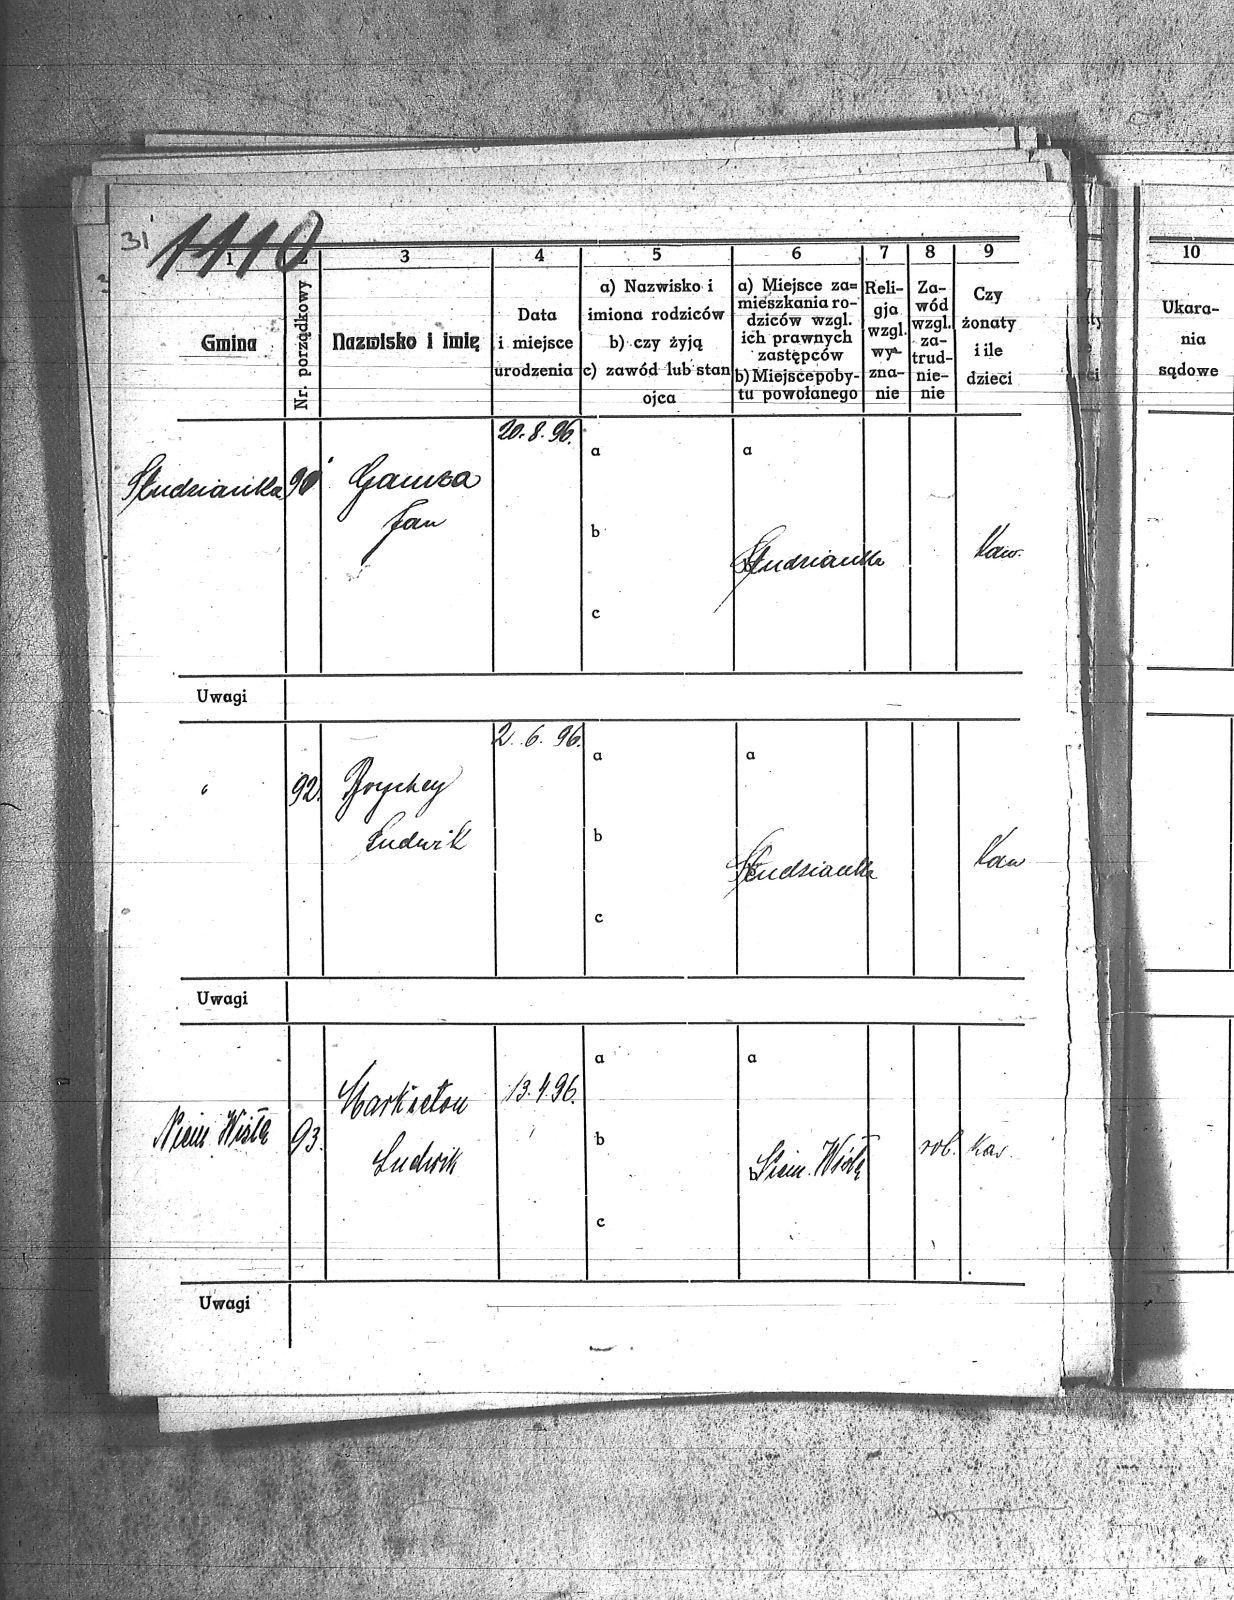 31
1110
1
3
4
5
6
7
8
9
10
Gmina
Nr. porządkowy
Nazwisko i imię
Data
i miejsce
urodzenia
a) Nazwisko i
imiona rodziców
b) czy żyją
c) zawód lub stan
ojca
a) Miejsce za=
mieszkania ro-
dziców wzgl.
ich prawnych
zastępców
b) Miejsce poby-
tu powołanego
Reli-
gja
wzgl.
wy-
zna-
nie
Za-
wód
wzgl.
za-
trud-
nie-
nie
Czy
żonaty
i ile
dzieci
Ukara-
nia
sądowe
Studzianka
Jan
20.8.96.
a
b
c
a
Studzianka
Kaw.
Uwagi
"
92.
Ludwik
2.6.96.
a
b
c
a
Studzianka
Kaw
Uwagi
Niem Wisła
93.
Ludwik
13.4.96.
a
b
c
a
b
Niem. Wisła
rob.
Kaw.
Uwagi